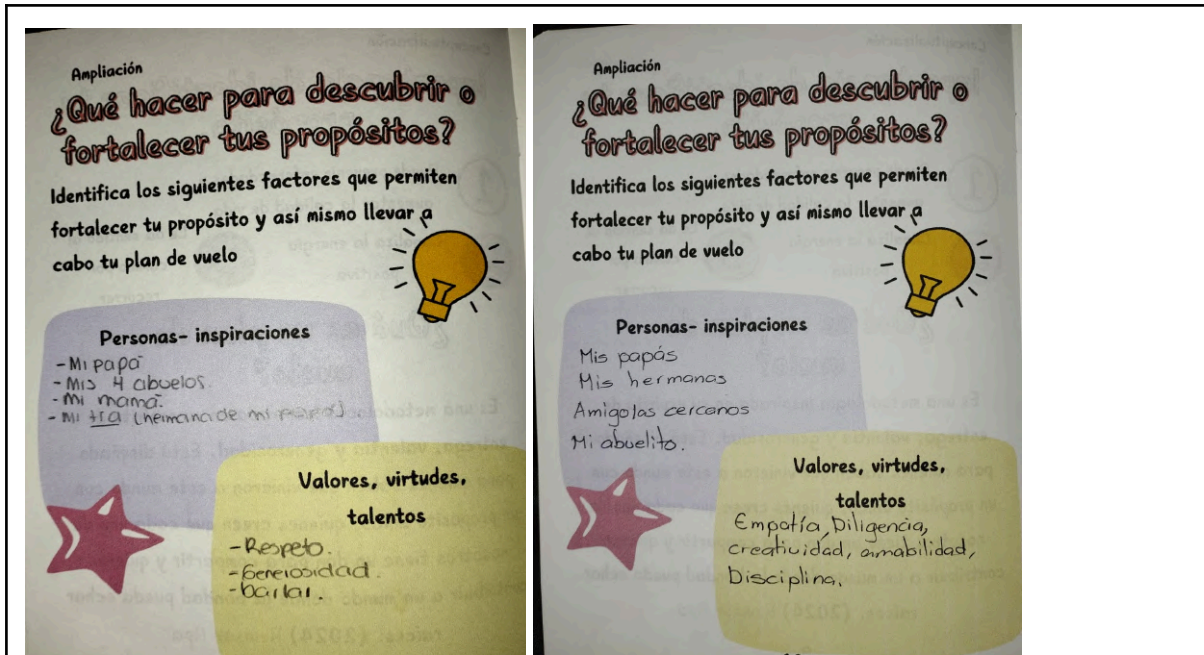 Ampliación
¿Qué hacer para descubrir o
fortalecer tus propósitos?
Identifica los siguientes factores que permiten
fortalecer tu propósito y así mismo llevar a
cabo tu plan de vuelo
Personas- inspiraciones
- Mi papá
- Mis 4 abuelos.
- Mi mamá.
- Mi tía (hermana de mi papá)
Valores, virtudes,
talentos
- Respeto.
- Generosidad.
- bailar.
Ampliación
¿Qué hacer para descubrir o
fortalecer tus propósitos?
Identifica los siguientes factores que permiten
fortalecer tu propósito y así mismo llevar a
cabo tu plan de vuelo
Personas- inspiraciones
Mis papás
Mis hermanas
Amigo/as cercanos
Mi abuelito.
Valores, virtudes,
talentos
Empatía, Diligencia,
creatividad, amabilidad,
Disciplina.